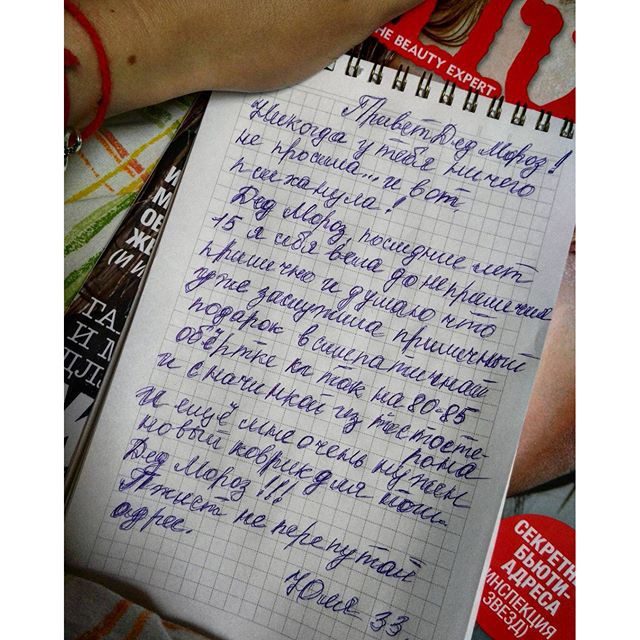 HE BEAUTY EXPERT
Привет Дед Мороз!
Никогда у тебя ничего
не просила... и вот,
психанула!
Дед Мороз последние лет
15 я себя вела до неприличия
прилично и думаю что
уже заслужила приличный
подарок в симпатичной
обёртке кг так на 80-85
и с начинкой из тестосте-
рона
И ещё мне очень нужен
новый коврик для йоги.
Дед Мороз!!!
Пжист не перепутай
адрес.
Юля 33
СЕКРЕТН
БЬЮТИ-
АДРЕСА
ИНСПЕКЦИЯ
ЗВЕЗД